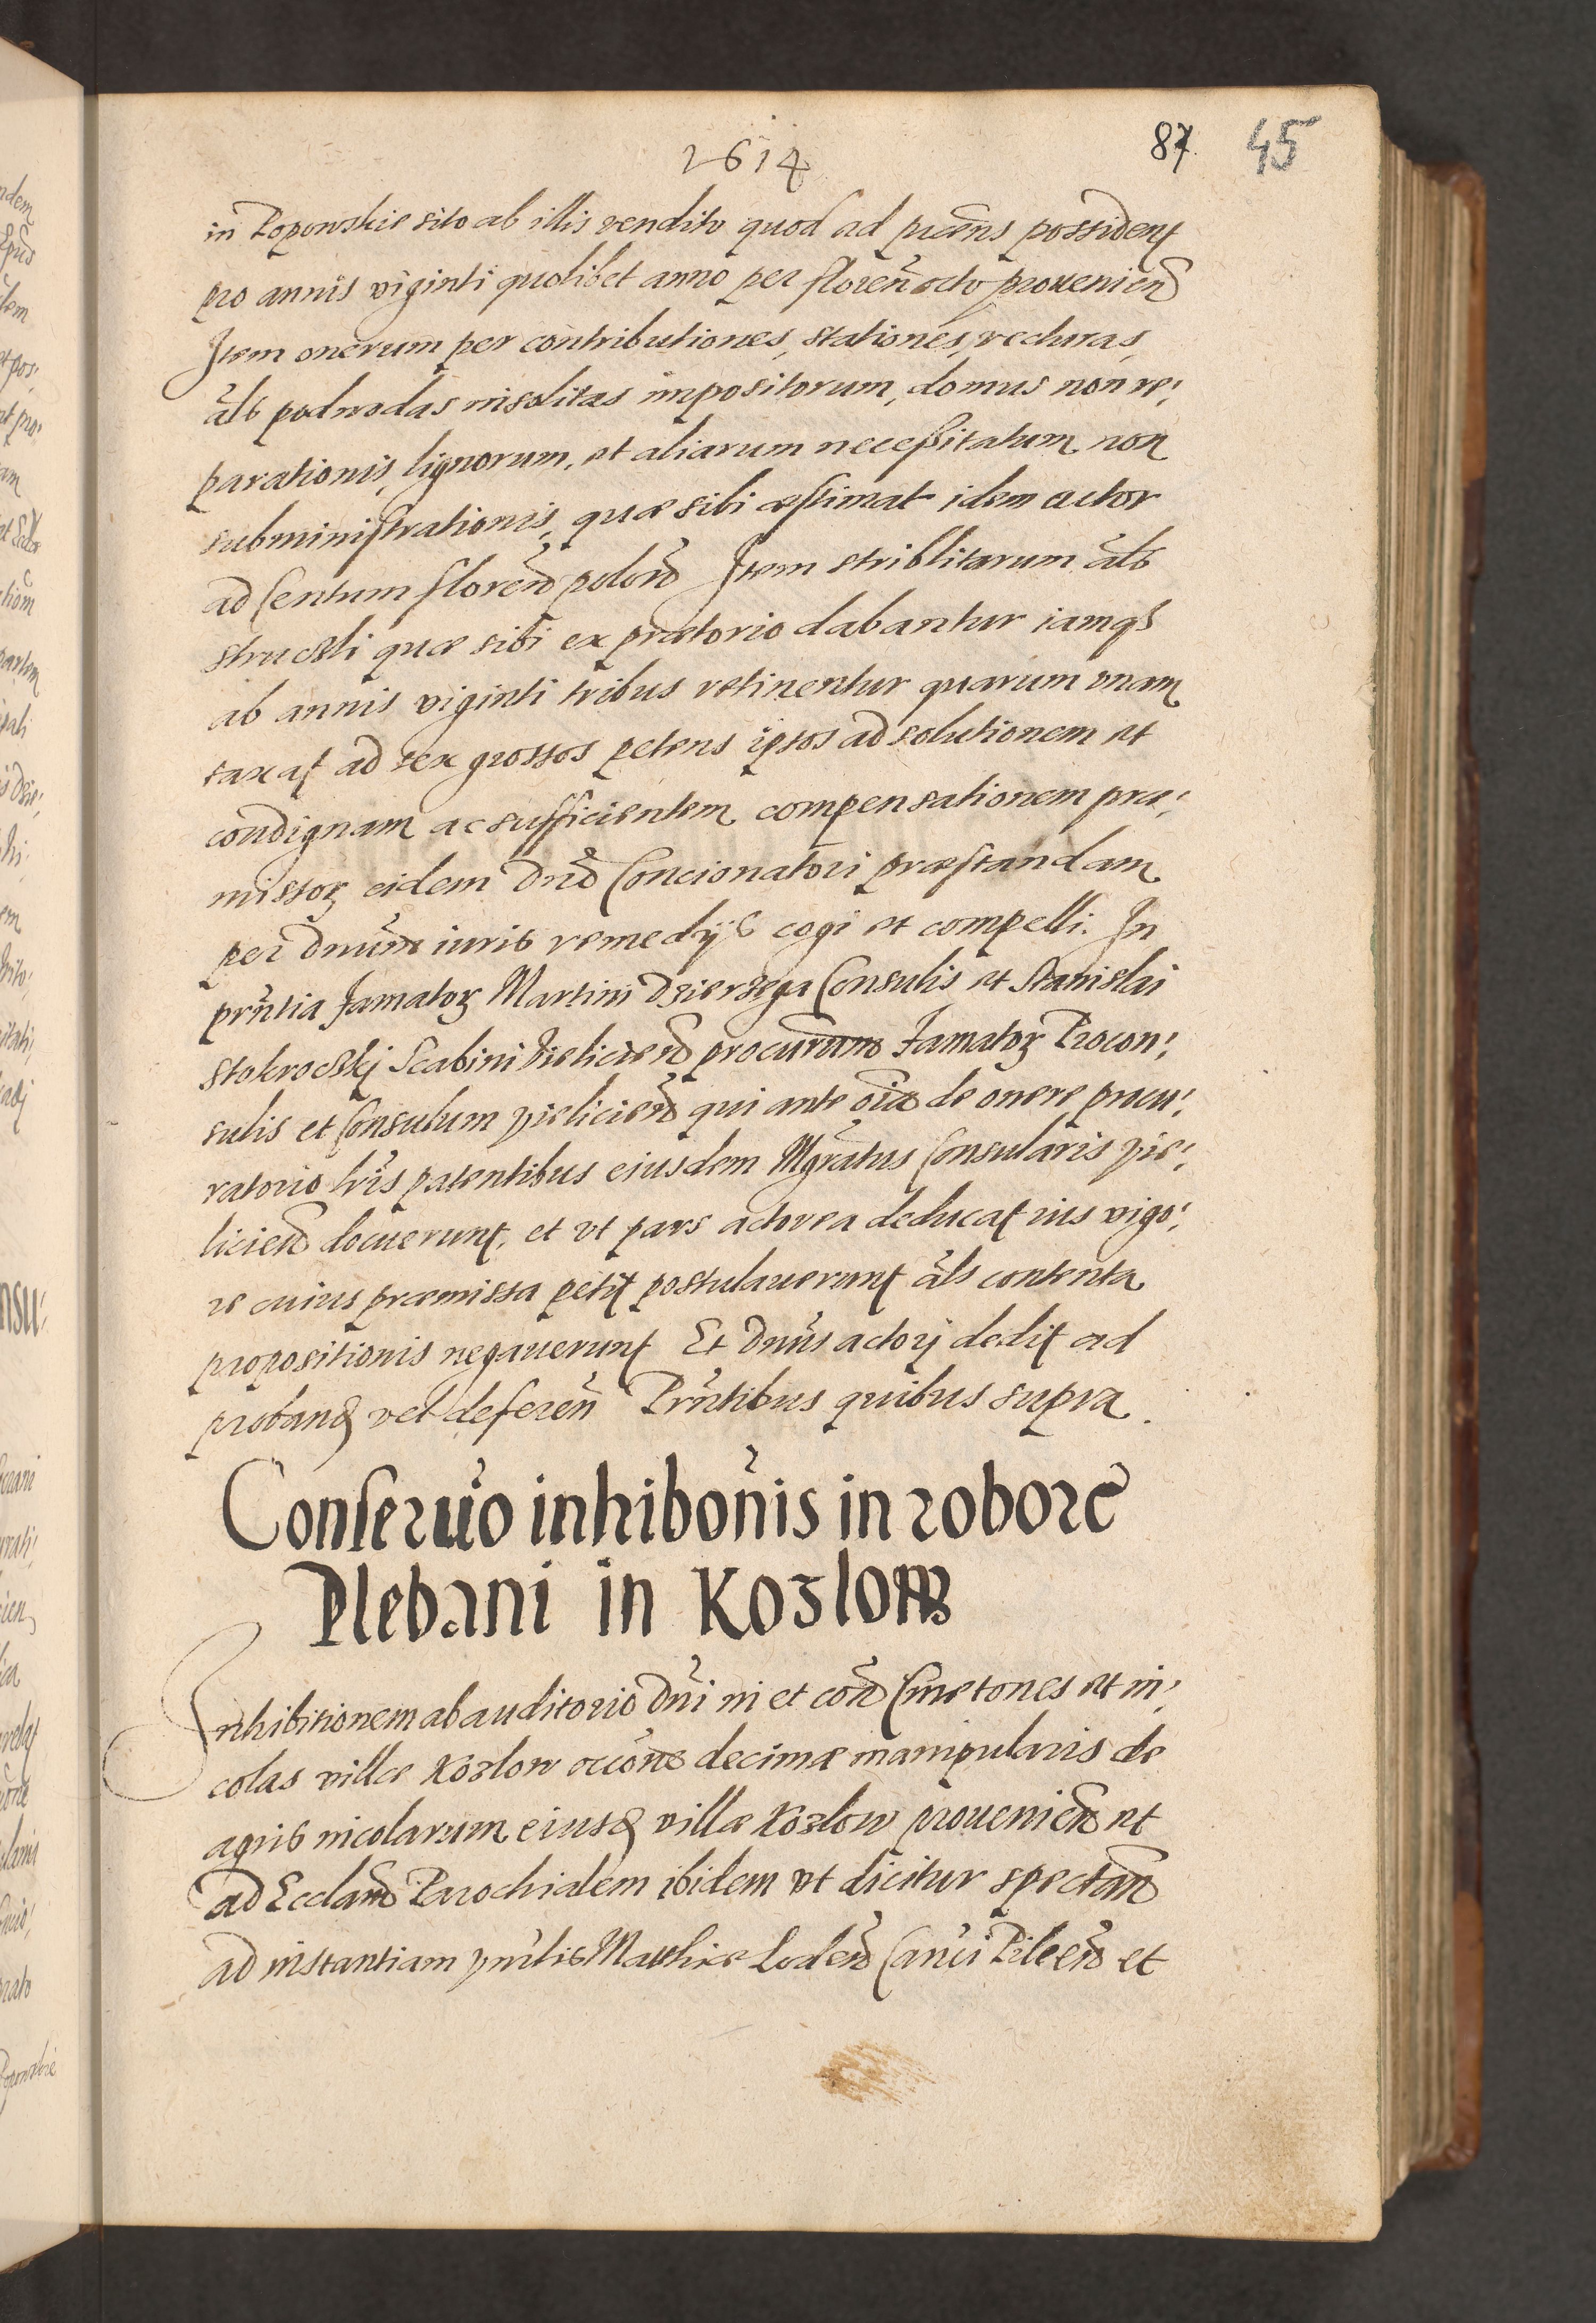 1614
87 45
in Poponskie sito ab illis vendito quod ad præns possident
pro annis viginti quolibet anno per floren̄ octo prouenien̄
Item onerum per contributiones, stationes, vecturas,
al̄s podwodas insolitas impositorum, domus non re:
parationis, lignorum, et aliarum necessitatum non
subministrationis, quæ sibi æstimat idem actor
ad Centum floren̄ polon̄ Item striblitarum al̄s
strucsli quæ sibi ex prætorio dabantur iamq;
ab annis viginti tribus retinentur quarum vnam
taxat ad sex grossos petens ipsos ad solutionem et
condignam ac sufficientem compensationem præ:
missoꝝ eidem Dn̄o Concionatori præstandam
per Dnūm iuris remedijs cogi et compelli. In
prn̄tia famatoꝝ Martini Dzierzega Consulis et Stanislai
Stokrocskj Scabini Vielicien̄ procurum̄ famatoꝝ Procon:
sulis et Consulum Vielicien̄ qui ante oīa de onere procu:
ratorio lr̄is patentibus eiusdem Mgrātus Consularis Vie:
licien̄ docuerunt, et vt pars actorea deducat ius vigo:
re cuius præmissa petit postulauerunt al̄s contenta
propositionis negauerunt Et Dnūs actorj dedit ad
proband̄ vel deferen̄ Prn̄tibus quibus supra.
Conseruo̅ inhibon̄is in robore
Plebani in Kozlow
Inhibitionem ab auditorio Dn̄i in et con̄ Cmetones et in:
colas villæ Kozlow occōne decimæ manipularis de
agris incolarum eiusd̄ villæ Kozlow prouenien̄ et
ad Ecclām Parochialem ibidem vt dicitur spectan̄
ad instantiam Vn̄rlis Mathiæ Loden̄ Canci Pilcen̄ et